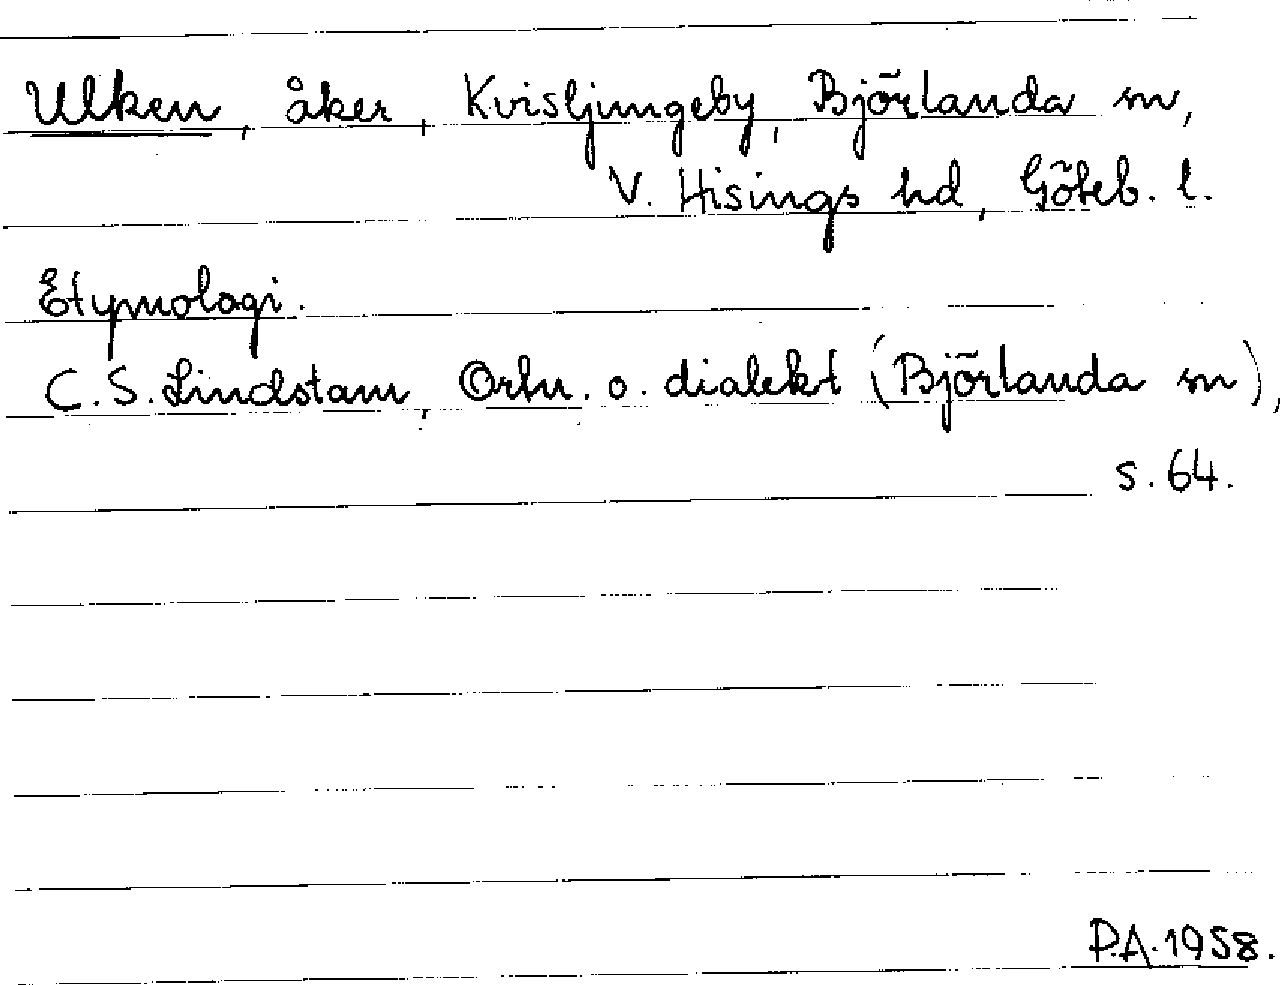 Ulken, åker, Kvisljungeby, Björlanda sn,
V. Hisings hd, Göteb. l.
Etymologi.
C. S. Lindstam, Ortn. o. dialekt (Björlanda sn),
s. 64.
P.A. 1958.